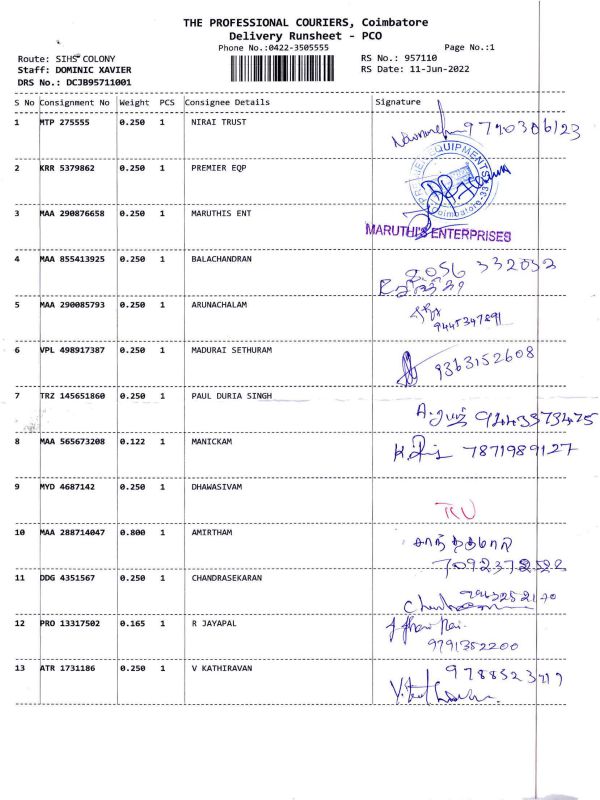 THE PROFESSIONAL COURIERS, Coimbatore
Delivery Runsheet - PCO
Phone No.:0422-3505555
Page No.:1
Route: SIHS COLONY
RS No.: 957110
Staff: DOMINIC XAVIER
RS Date: 11-Jun-2022
DRS No.: DCJB95711001
S No Consignment No Weight PCS Consignee Details Signature
1 MTP 275555 0.250 1 NIRAI TRUST 9790306123
2 KRR 5379862 0.250 1 PREMIER EQP
PREMIER EQUIPMENTS
Coimbatore-33
3 MAA 290876658 0.250 1 MARUTHIS ENT
MARUTHI'S ENTERPRISES
4 MAA 855413925 0.250 1 BALACHANDRAN
5 MAA 290085793 0.250 1 ARUNACHALAM
9445347891
6 VPL 498917387 0.250 1 MADURAI SETHURAM 9363152608
7 TRZ 145651860 0.250 1 PAUL DURIA SINGH
9443373475
8 MAA 565673208 0.122 1 MANICKAM 7871989127
9 MYD 4687142 0.250 1 DHAWASIVAM
10 MAA 288714047 0.800 1 AMIRTHAM
7092372522
11 DDG 4351567 0.250 1 CHANDRASEKARAN
12 PRO 13317502 0.165 1 R JAYAPAL
9791352200
13 ATR 1731186 0.250 1 V KATHIRAVAN